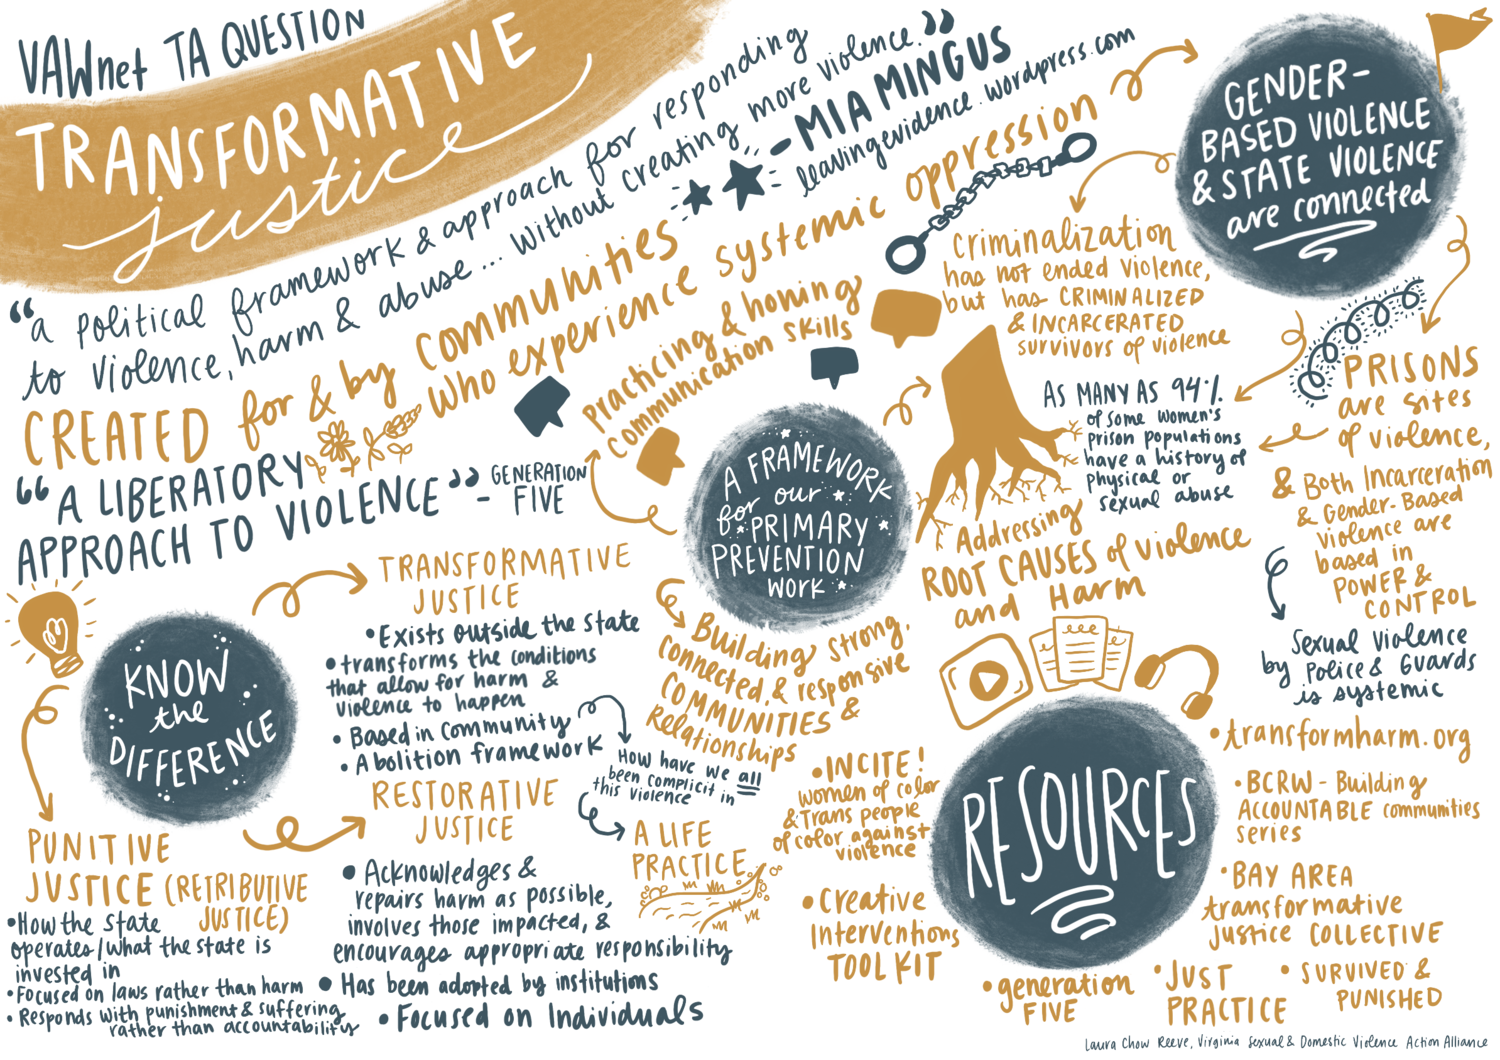 VAWnet TA QUESTION
TRANSFORMATIVE
justice
"a political framework & approach for responding
to violence, harm & abuse... without creating more violence."
- MIA MINGUS
leavingevidence.wordpress.com
CREATED for & by communities
who experience systemic oppression
"A LIBERATORY
APPROACH TO VIOLENCE"
- GENERATION
FIVE
KNOW
the
DIFFERENCE
TRANSFORMATIVE
JUSTICE
• Exists outside the state
• transforms the conditions
that allow for harm &
violence to happen
• Based in Community
• Abolition framework
How have we all
been complicit in
this violence
A LIFE
PRACTICE
RESTORATIVE
JUSTICE
• Acknowledges &
repairs harm as possible,
involves those impacted, &
encourages appropriate responsibility
• Has been adopted by institutions
• Focused on Individuals
PUNITIVE
JUSTICE (RETRIBUTIVE
JUSTICE)
• How the state
operates/what the state is
invested in
• Focused on laws rather than harm
• Responds with punishment & suffering
rather than accountability
A FRAMEWORK
for our
PRIMARY
PREVENTION
WORK
Practicing & honing
communication skills
Building strong,
connected, & responsive
COMMUNITIES &
Relationships
Addressing
ROOT CAUSES of violence
and Harm
GENDER-
BASED VIOLENCE
& STATE VIOLENCE
are connected
Criminalization
has not ended violence,
but has CRIMINALIZED
& INCARCERATED
survivors of violence
AS MANY AS 94%
of some women's
prison populations
have a history of
physical or
sexual abuse
PRISONS
are sites
of violence,
& Both Incarceration
& Gender-Based
violence are
based in
POWER &
CONTROL
Sexual violence
by Police & Guards
is systemic
RESOURCES
• transformharm.org
• BCRW - Building
ACCOUNTABLE communities
series
• BAY AREA
transformative
justice COLLECTIVE
• SURVIVED &
PUNISHED
• JUST
PRACTICE
• generation
FIVE
• Creative
Interventions
TOOLKIT
• INCITE!
women of color
& Trans people
of color against
violence
Laura Chow Reeve, Virginia Sexual & Domestic Violence Action Alliance